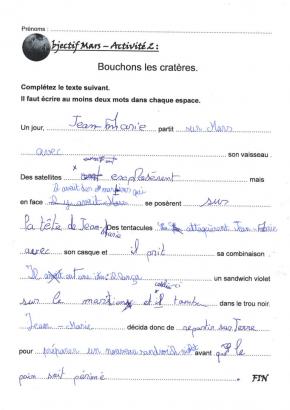 Prénoms :
Objectif Mars – Activité 2 :
Bouchons les cratères.
Complétez le texte suivant.
Il faut écrire au moins deux mots dans chaque espace.
Un jour, Jean-Marie partit sur Mars
avec son vaisseau.
Des satellites explosèrent mais
il avait des qui
en face il y avait Mars se posèrent sur
la tête de Jean-Marie Des tentacules attaquèrent Jean-Marie
avec son casque et il prit sa combinaison.
Il lança un sandwich violet
sur le martien et celui-ci tomba dans le trou noir.
Jean-Marie décida donc de repartir sur Terre
pour préparer un nouveau sandwich avant que le
pain soit périmé. FIN